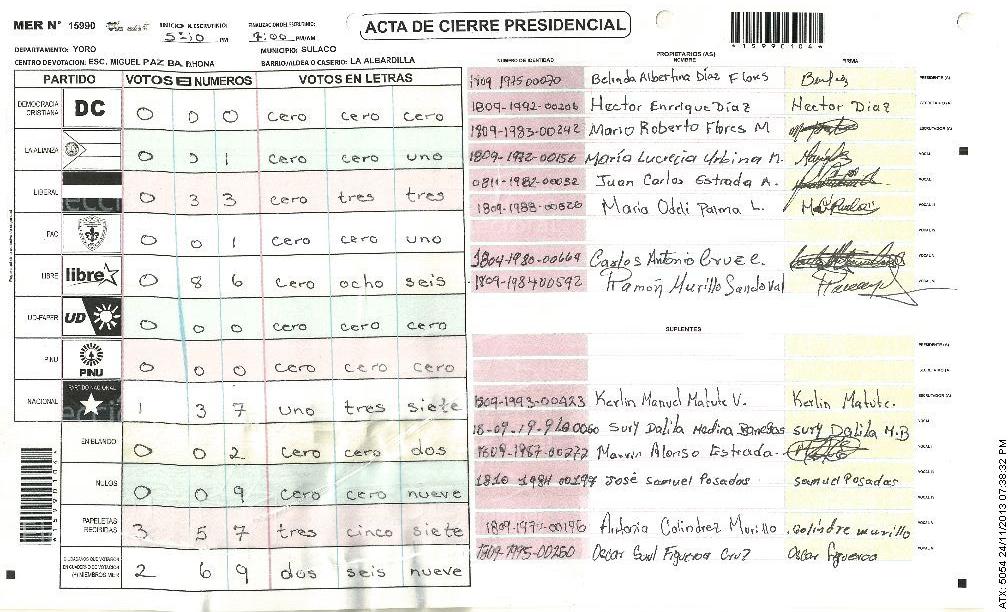 MER N° 15990 INICIO DE ESCRUTINIO: 5:10 PM FINALIZACION DEL ESCRUTINIO: 7:00 PM/AM
ACTA DE CIERRE PRESIDENCIAL
*15990104*
DEPARTAMENTO: YORO MUNICIPIO: SULACO
CENTRO DE VOTACION: ESC. MIGUEL PAZ BARAHONA BARRIO/ALDEA O CASERIO: LA ALBARDILLA
PARTIDO VOTOS EN NUMEROS VOTOS EN LETRAS
DEMOCRACIA CRISTIANA DC 0 0 0 cero cero cero
LA ALIANZA 0 0 1 cero cero uno
LIBERAL 0 3 3 cero tres tres
FAC 0 0 1 cero cero uno
LIBRE libre 0 8 6 cero ocho seis
UD-FAPER UD 0 0 0 cero cero cero
PINU PINU 0 0 0 cero cero cero
NACIONAL PARTIDO NACIONAL 1 3 7 uno tres siete
EN BLANCO 0 0 2 cero cero dos
NULOS 0 0 9 cero cero nueve
PAPELETAS RECIBIDAS 3 5 7 tres cinco siete
CIUDADANOS QUE VOTARON EN CUADERNO DE VOTACION (+) MIEMBROS MER 2 6 9 dos seis nueve
*15990104*
PROPIETARIOS (AS)
NUMERO DE IDENTIDAD NOMBRE FIRMA
1809 1975 00070 Belinda Albertina Díaz Flores PRESIDENTE (A)
1809-1992-00206 Hector Enrrique Díaz Hector Diaz SECRETARIO (A)
1809-1983-00242 Mario Roberto Flores M ESCRUTADOR (A)
1809-1972-00156 María Lucrecia Urbina M. VOCAL I
0811-1982-00032 Juan Carlos Estrada A. VOCAL II
1809-1988-00526 Maria Odeli Palma L. VOCAL III
VOCAL IV
1804-1980-00664 Carlos Antonio Cruz C. VOCAL V
1809-198400592 Ramón Murillo Sandoval VOCAL VI
SUPLENTES
PRESIDENTE (A)
SECRETARIO (A)
1809-1993-00423 Kerlin Manuel Matute V. Kerlin Matute. ESCRUTADOR (A)
Sury Dalila Medina Banegas Sury Dalila M.B VOCAL I
1809-1987-00272 Marvin Alonso Estrada. VOCAL II
1810 1984 00197 José Samuel Posadas Samuel Posadas VOCAL III
VOCAL IV
Antonia Colindrez Murillo Colindre murillo VOCAL V
1809-1995-00250 Oscar Saul Figueroa Cruz Oscar Figueroa VOCAL VI
ATX: 5054 24/11/2013 07:38:32 PM